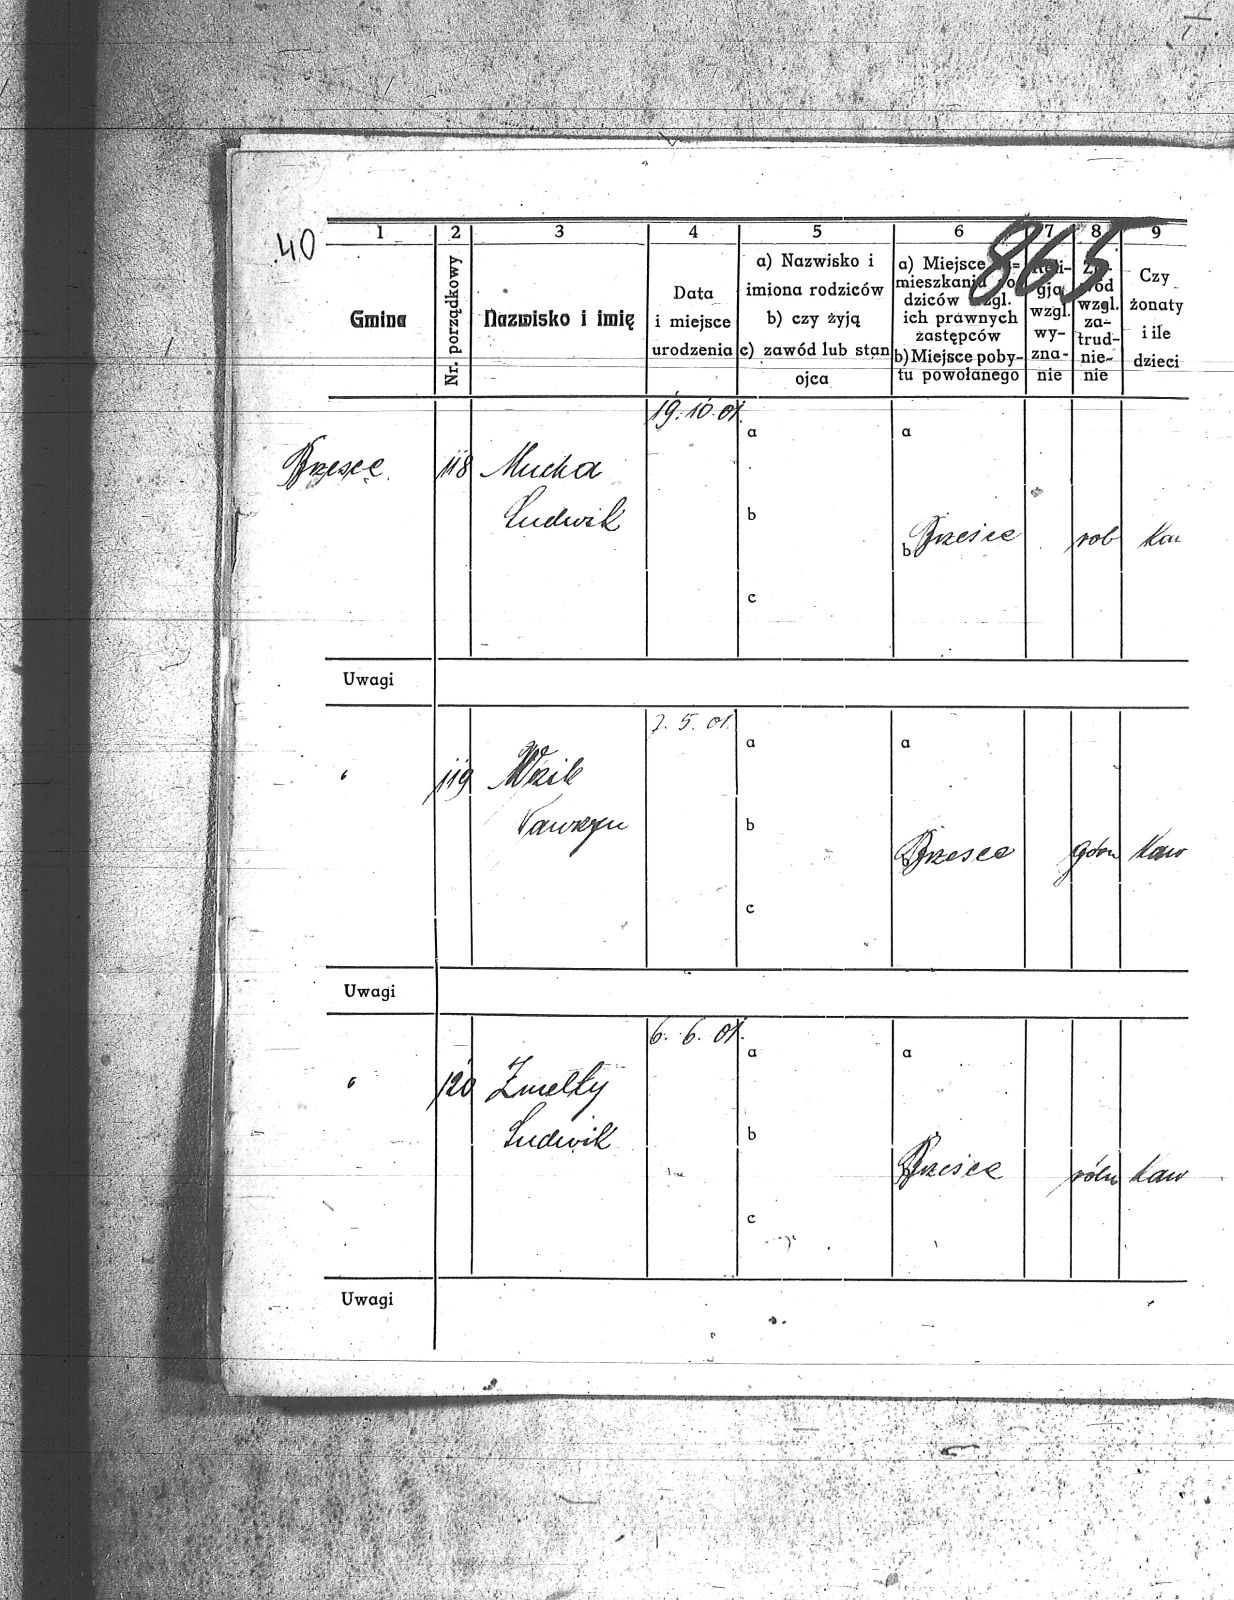 40
865
1 2 3 4 5 6 7 8 9
Gmina
Nr. porządkowy
Nazwisko i imię
Data
i miejsce
urodzenia
a) Nazwisko i
imiona rodziców
b) czy żyją
c) zawód lub stan
ojca
a) Miejsce
mieszkania
dziców wzgl.
ich prawnych
zastępców
b) Miejsce poby-
tu powołanego
Reli-
gja
wzgl.
wy-
zna-
nie
wzgl.
za-
trud-
nie-
nie
Czy
żonaty
i ile
dzieci
19. 10. 01.
Brzeşce 118 Mucha a a
Ludwik b
b Brzeście rob Kaw
c
Uwagi
7. 5. 01.
" 119 a a
Wawrzyn b
b Brzesce górn Kaw
c
Uwagi
6. 6. 01.
" 120 Zmełty a a
Ludwik b
b Brzesce róln Kaw
c
Uwagi